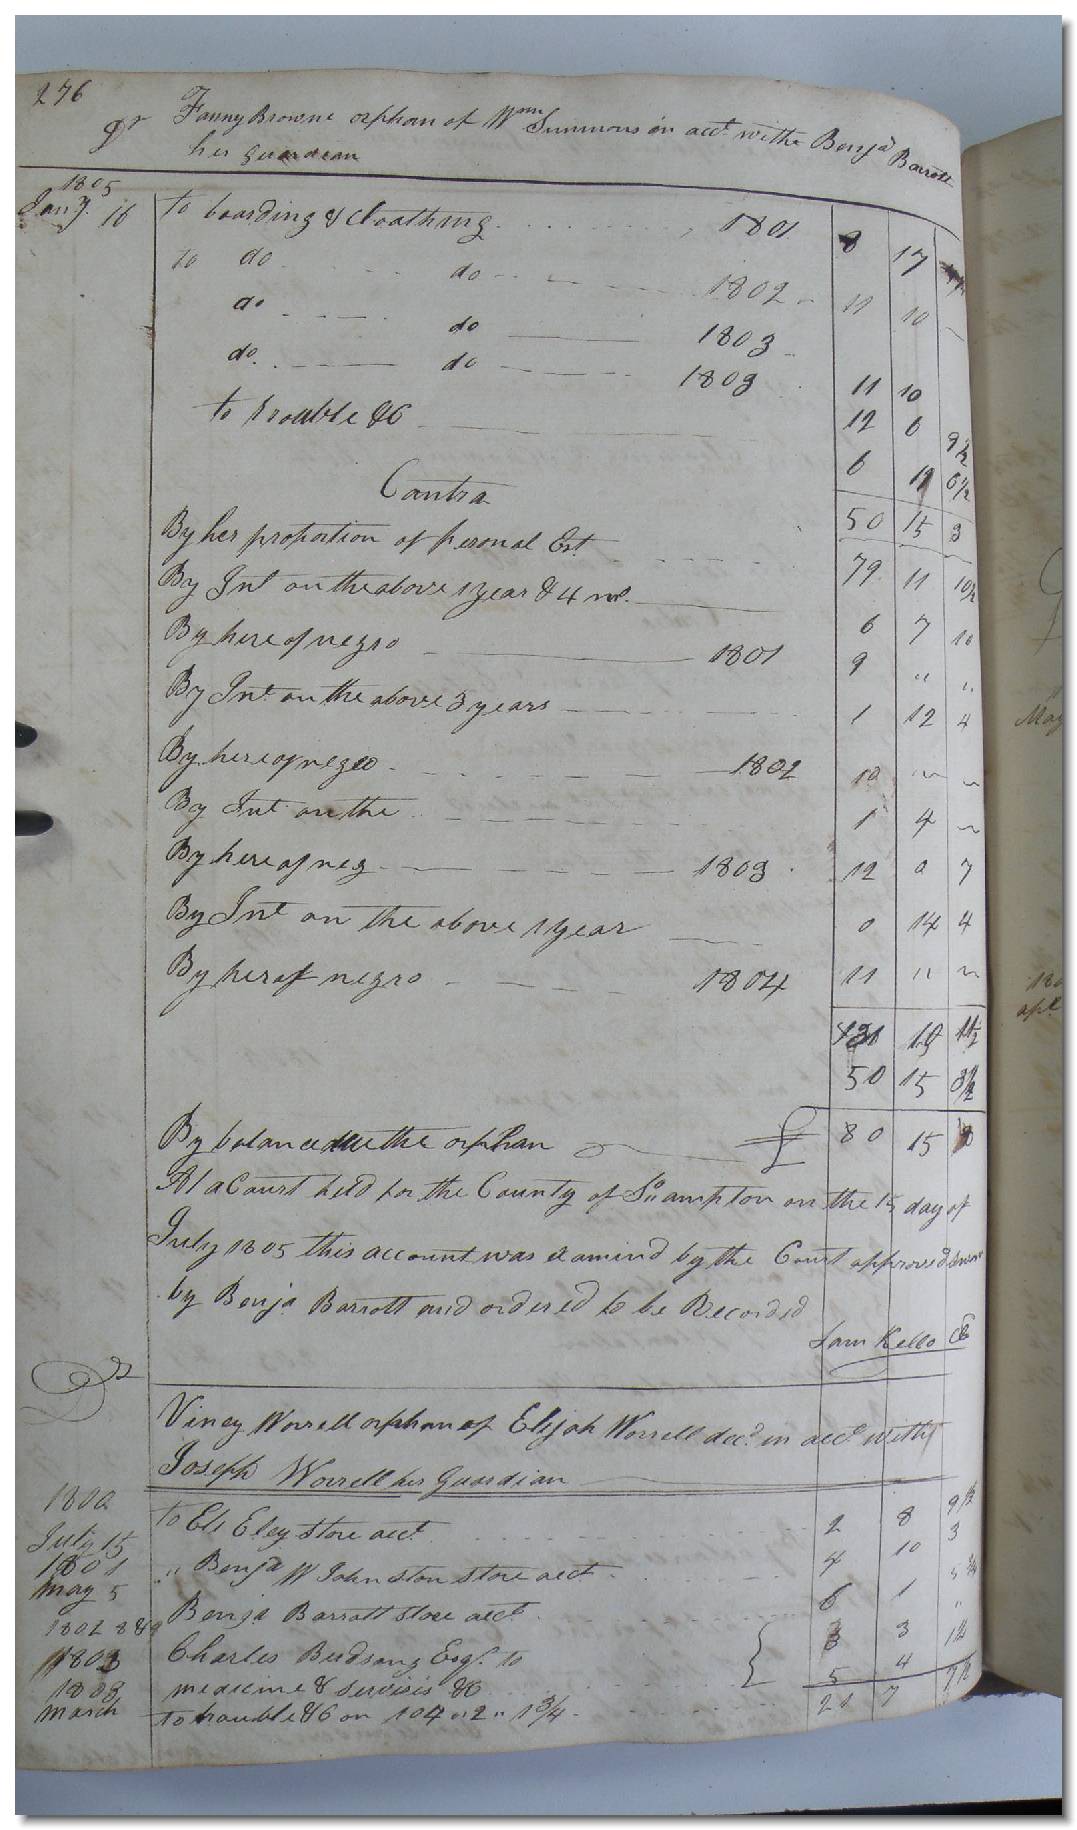 276
Dr Fanny Browne orphan of Wm Summons in acct. withe Benja Barrott
her guardian
1805
Jany. 16 to boarding & cloathing 1801 8 17
to do do 1802 11 10
do do 1803 11 10
do. do 1803 12 6 9½
to trouble &C 6 11 6½
Contra 50 15 3
By her proportion of personal Est. 79 11 10½
By Int on the above 1 year & 4 mo. 6 7 10
By here of negro 1801 9 " "
By Int. on the above 3 years 1 12 4
By here of negro 1802 10 ~ ~
By Int on the 1 4 ~
By here of neg 1803 12 0 7
By Int on the above 1 year 0 14 4
By her of negro 1804 11 " ~
131 11½
50 15 3½
By balance due the orphan £ 80 15 8
At a Court held for the County of So.ampton on the 15 day of
July 1805 this account was examind by the Court approved sworn
by Benja Barrott and ordered to be Recorded
Sam Kello CC
Dr
Viney Worrell orphan of Elijah Worrell decd. in acct. with
Joseph Worrell her Guardian
1800
July 15 to Eli Eley store acct. 2 8 9½
1801
may 5 " Benja W Johnston store acct. 4 10 3
1802 & Benja Barrott store acct. 6 1
1803 Charles Birdsong Esqr. to 3 3
1803 medicine & servises &C 5 4 1½
march to trouble &C on 104 " 2 " 1¾ 21 7 7½